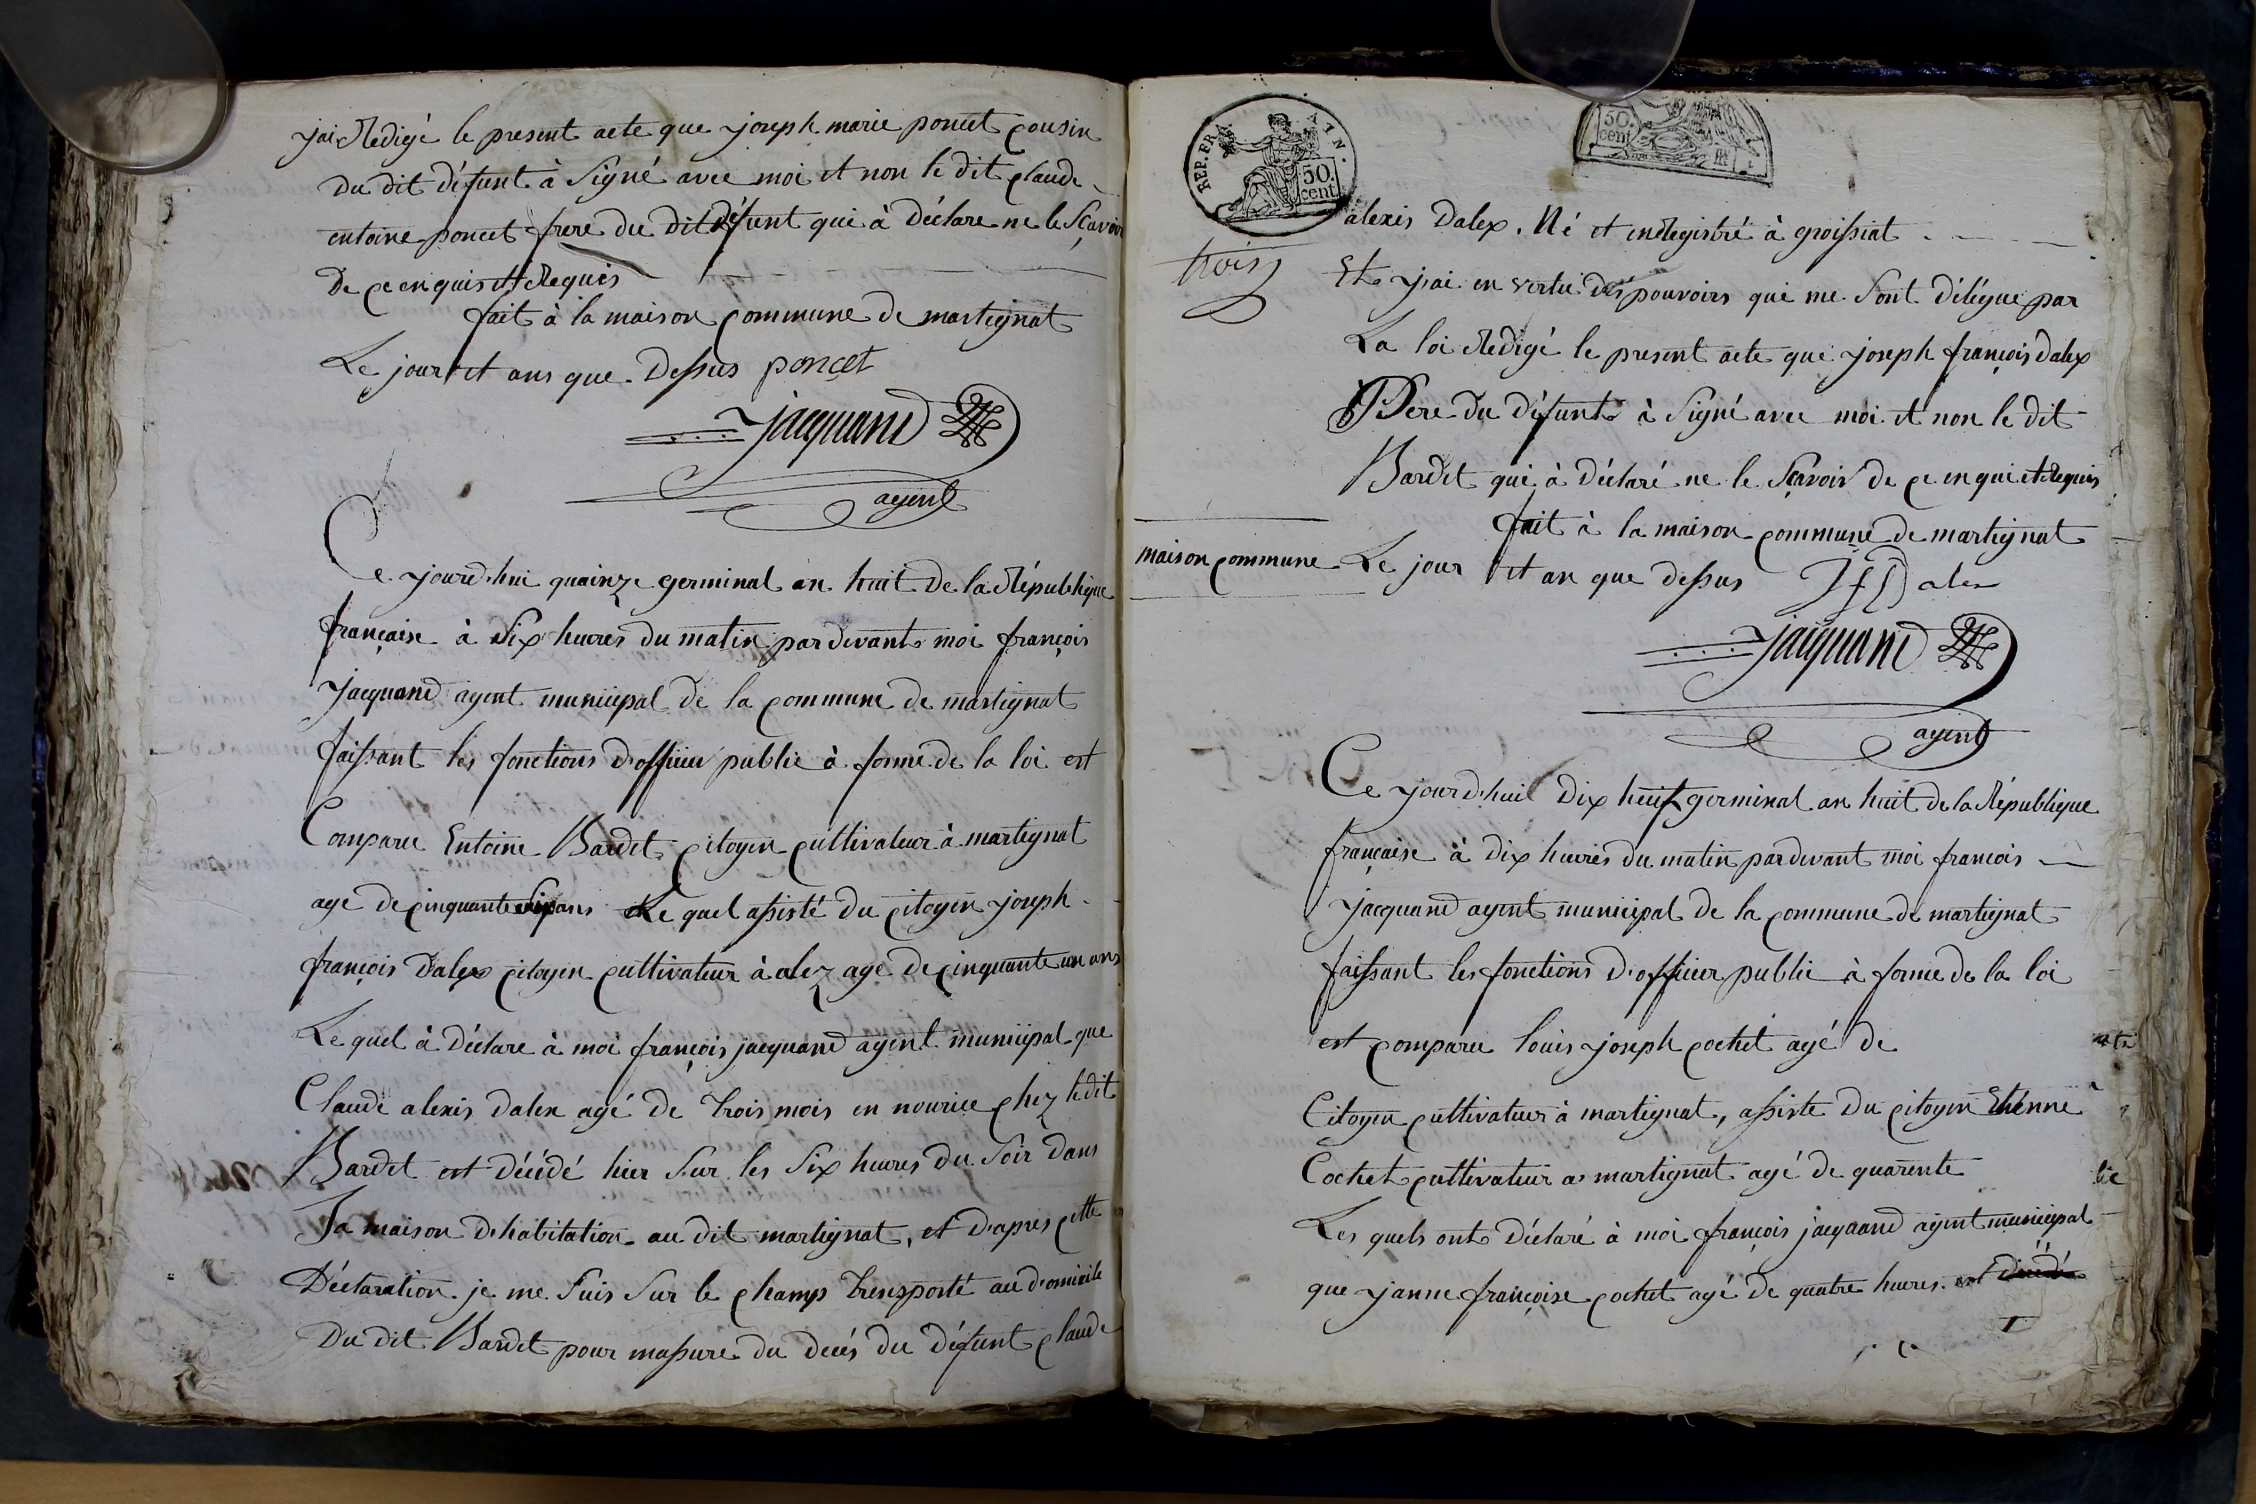 j'ai Redigé le present acte que joseph marie poncet cousin
du dit défunt à Signé avec moi et non le dit claude
entoine poncet frere du dit défunt qui à déclare ne le Sçavoir
De ce enquis et Requis
fait à la maison commune de martignat
Le jour et ans que Dessus poncet
jacquand
agent
Ce jourd'hui quainze germinal an huit de la République
française à Six heures du matin pardevant moi françois
jacquand agent municipal de la commune de martignat
faissant les fonctions d'officier public à forme de la loi est
Comparu Entoine Bardet citoyen cultivateur à martignat
age de cinquante Six ans Le quel assisté du citoyen joseph
françois Dalex citoyen cultivateur à alez age de cinquante un ans
Le quel à Déclare à moi françois jacquand agent municipal que
Claude alexis dalex agé de trois mois en nourice chez le dit
Bardet est décédé hier Sur les Six heures du Soir dans
Sa maison d'habitation au dit martignat, et d'apres cette
Déclaration je me Suis Sur le champs transporté au domicile
Du dit Bardet pour massure du decés du défunt claude
REP. FRA
50.
cent.
50.
cent
alexis Dalex. Né et enRegistré à groissiat
trois
Et j'ai en vertu des pouvoirs qui me Sont délégue par
La loi Redigé le present acte que joseph françois dalex
Pere du défunt à Signé avec moi et non le dit
Bardet qui à déclaré ne le Sçavoir de ce en qui et Requis
fait à la maison commune de martignat
maison commune
Le jour et an que dessus JfDalex
jacquand
agent
Ce jourd'hui Dix huit germinal an huit de la République
française à dix heures du matin pardevant moi francois
jacquand agent municipal de la commune de martignat
faissant les fonctions d'officier public à forme de la loi
est comparu louis joseph cochet agé de
Citoyen cultivateur à martignat, assiste du citoyen Etienne
Cochet cultivateur a martignat agé de quarente
Les quels ont Déclaré à moi françois jacquand agent municipal
que janne françoise cochet agé de quatre heures est décédé